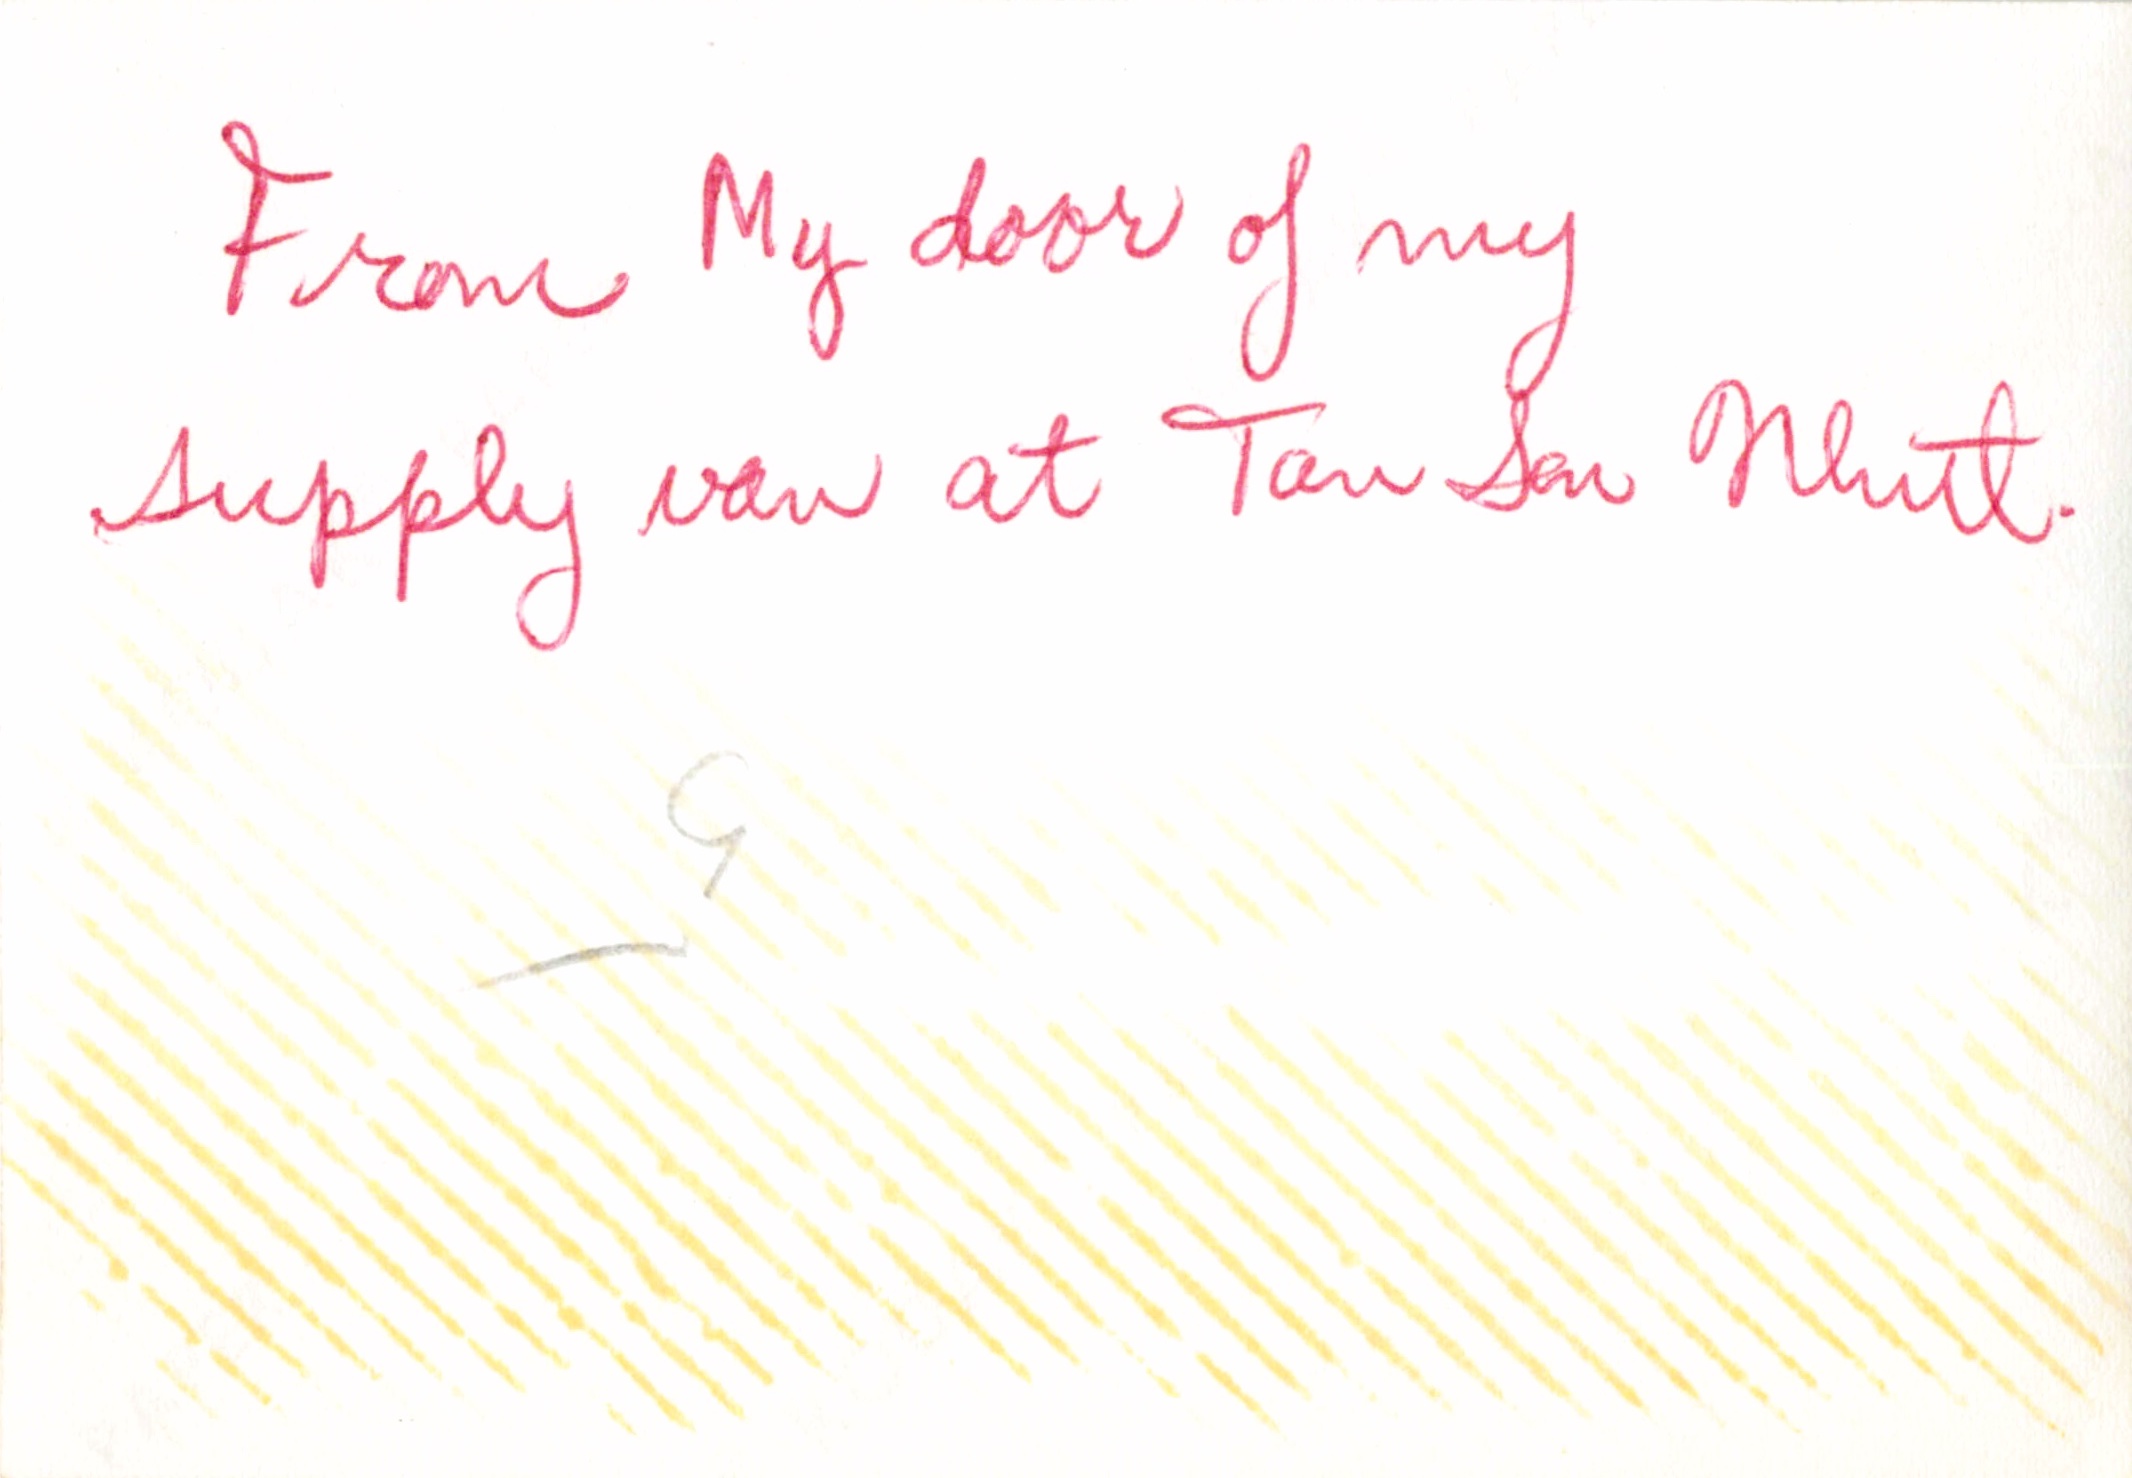 From My door of my
supply van at Tan Son Nhut.